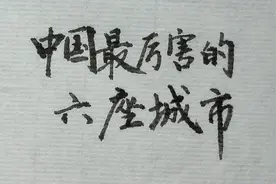 中国最厉害的
六座城市